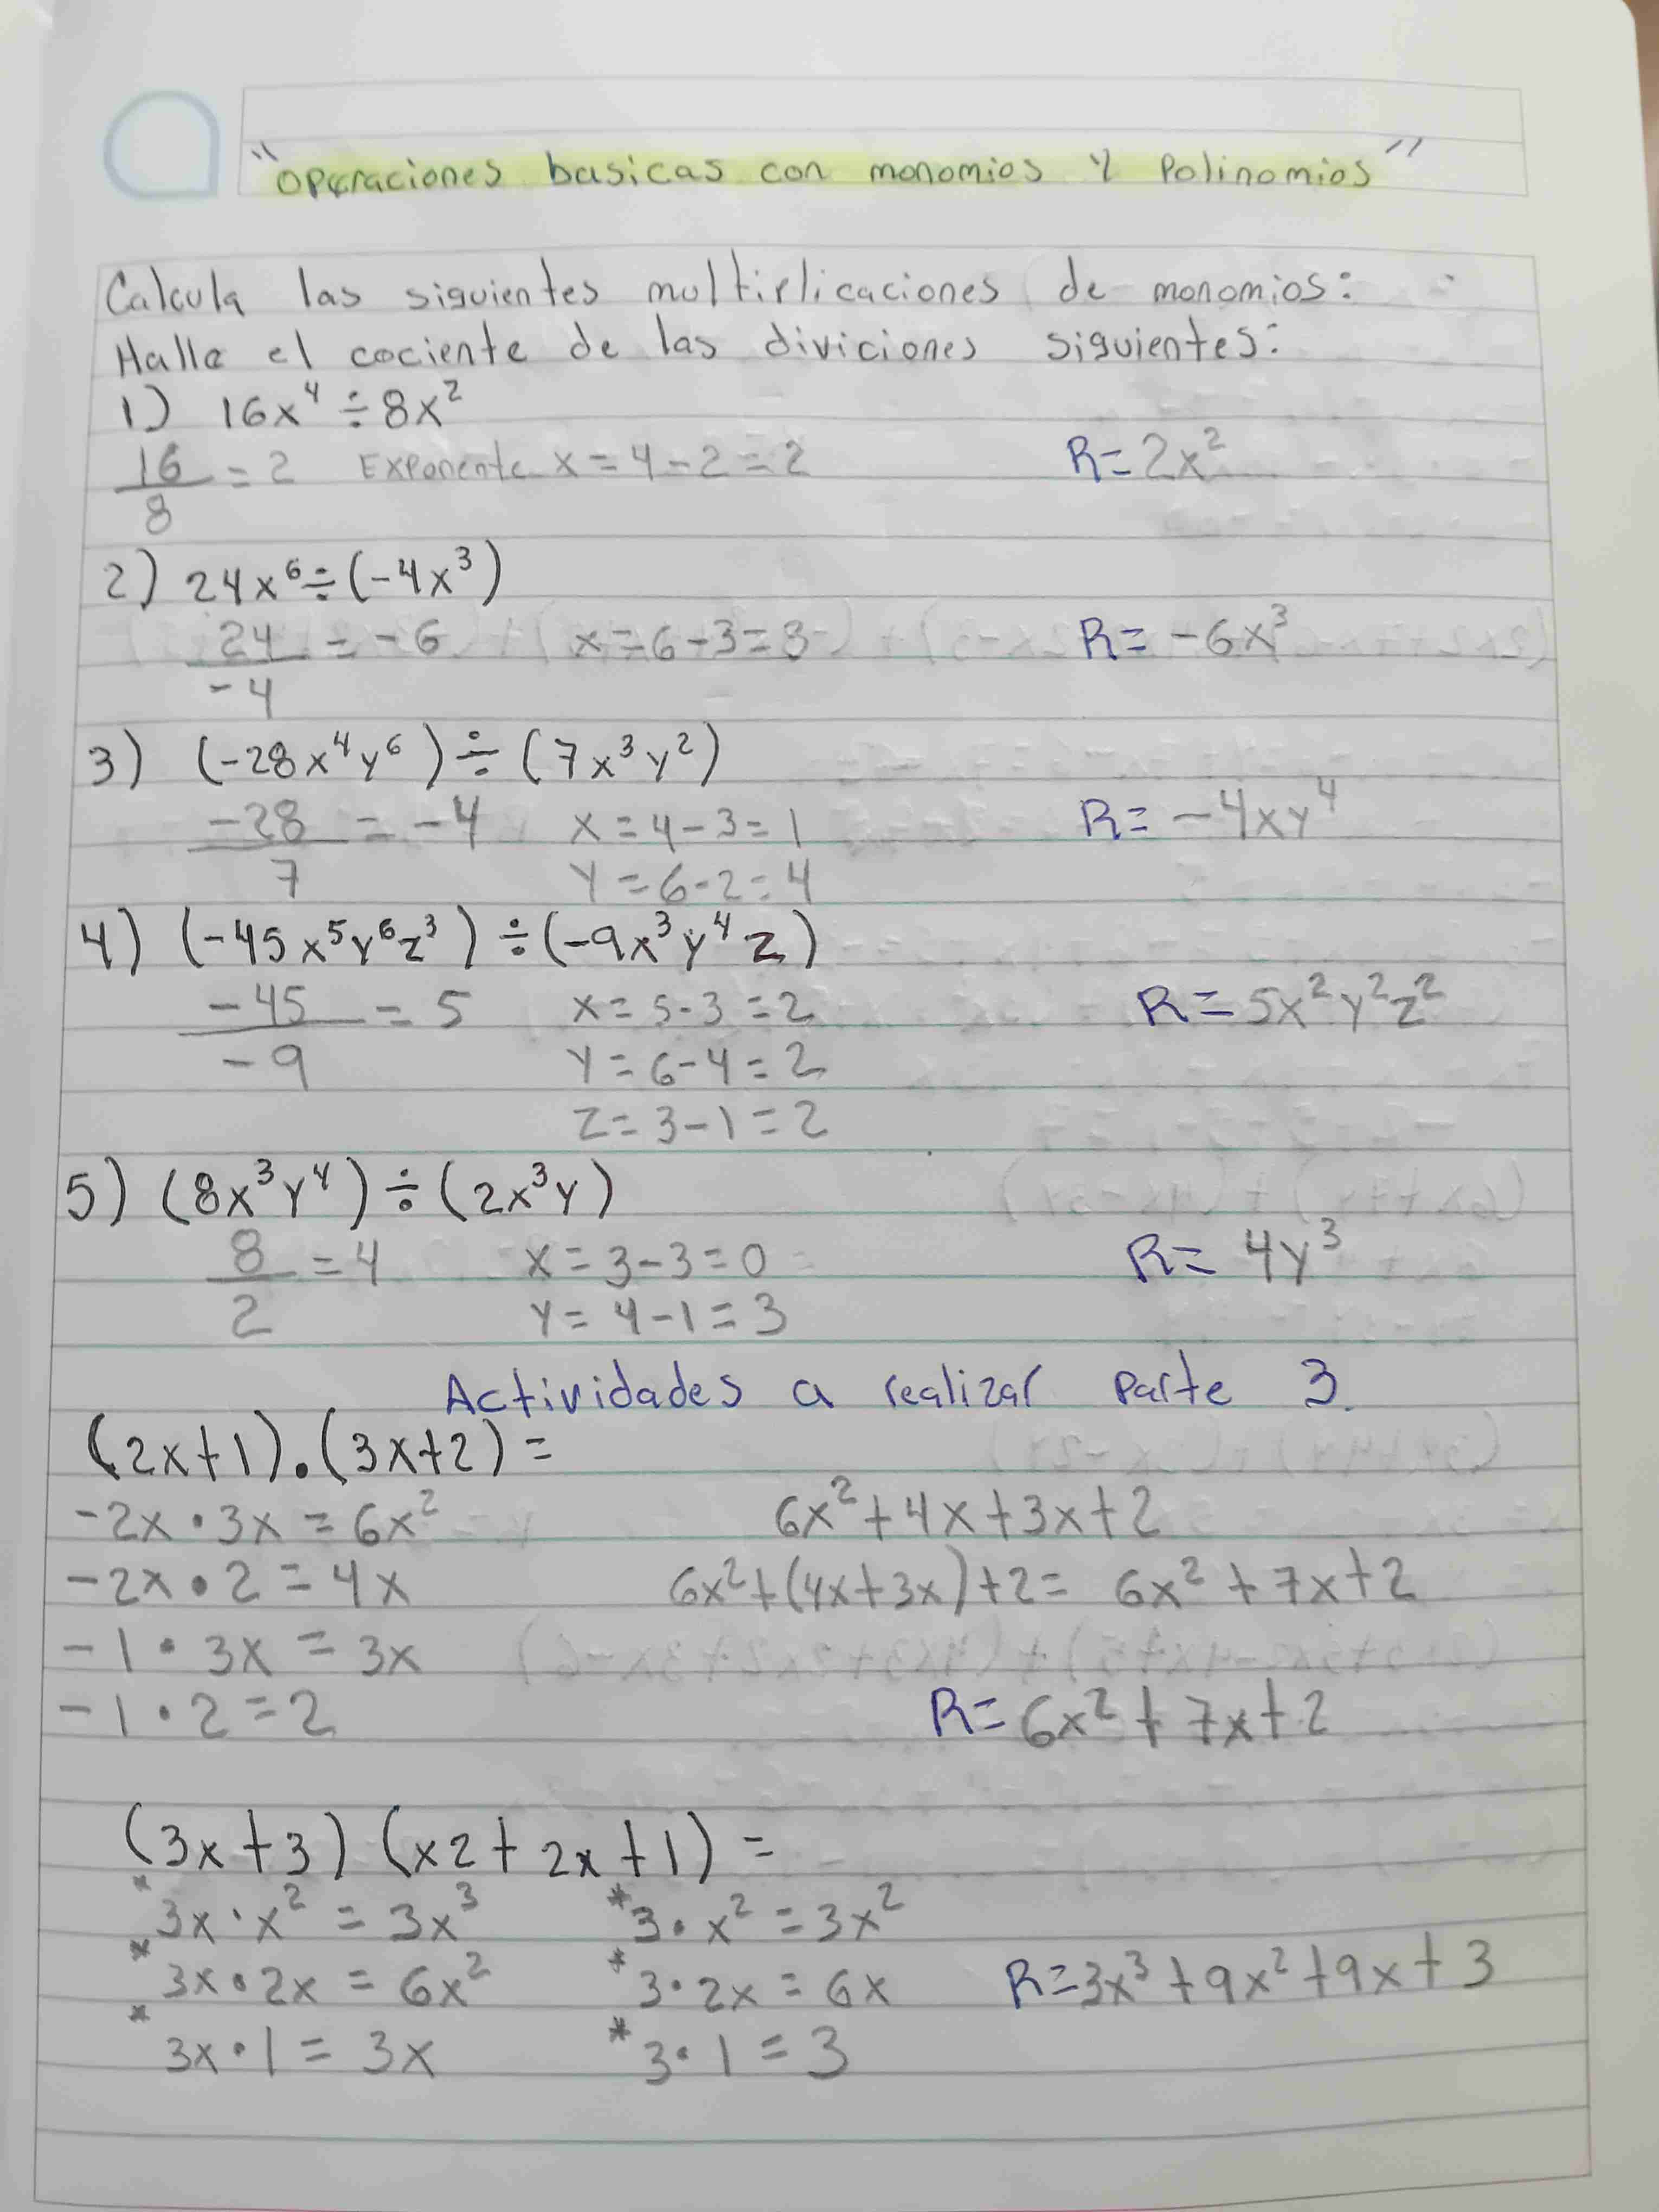 "Operaciones basicas con monomios y Polinomios"
Calcula las siguientes multiplicaciones de monomios:
Halle el cociente de las diviciones siguientes:
1) 16x⁴ ÷ 8x²
16/8 = 2 Exponente x = 4 - 2 = 2 R = 2x²
2) 24x⁶ ÷ (-4x³)
24/-4 = -6 x = 6 - 3 = 3 R = -6x³
3) (-28x⁴y⁶) ÷ (7x³y²)
-28/7 = -4 x = 4 - 3 = 1 R = -4xy⁴
y = 6 - 2 = 4
4) (-45x⁵y⁶z³) ÷ (-9x³y⁴z)
-45/-9 = 5 x = 5 - 3 = 2 R = 5x²y²z²
y = 6 - 4 = 2
z = 3 - 1 = 2
5) (8x³y⁴) ÷ (2x³y)
8/2 = 4 x = 3 - 3 = 0 R = 4y³
y = 4 - 1 = 3
Actividades a realizar parte 3.
(2x+1).(3x+2) =
-2x · 3x = 6x² 6x² + 4x + 3x + 2
-2x · 2 = 4x 6x² + (4x + 3x) + 2 = 6x² + 7x + 2
-1 · 3x = 3x
-1 · 2 = 2 R = 6x² + 7x + 2
(3x+3) (x2 + 2x + 1) =
* 3x · x² = 3x³ * 3 · x² = 3x²
* 3x · 2x = 6x² * 3 · 2x = 6x R = 3x³ + 9x² + 9x + 3
* 3x · 1 = 3x * 3 · 1 = 3